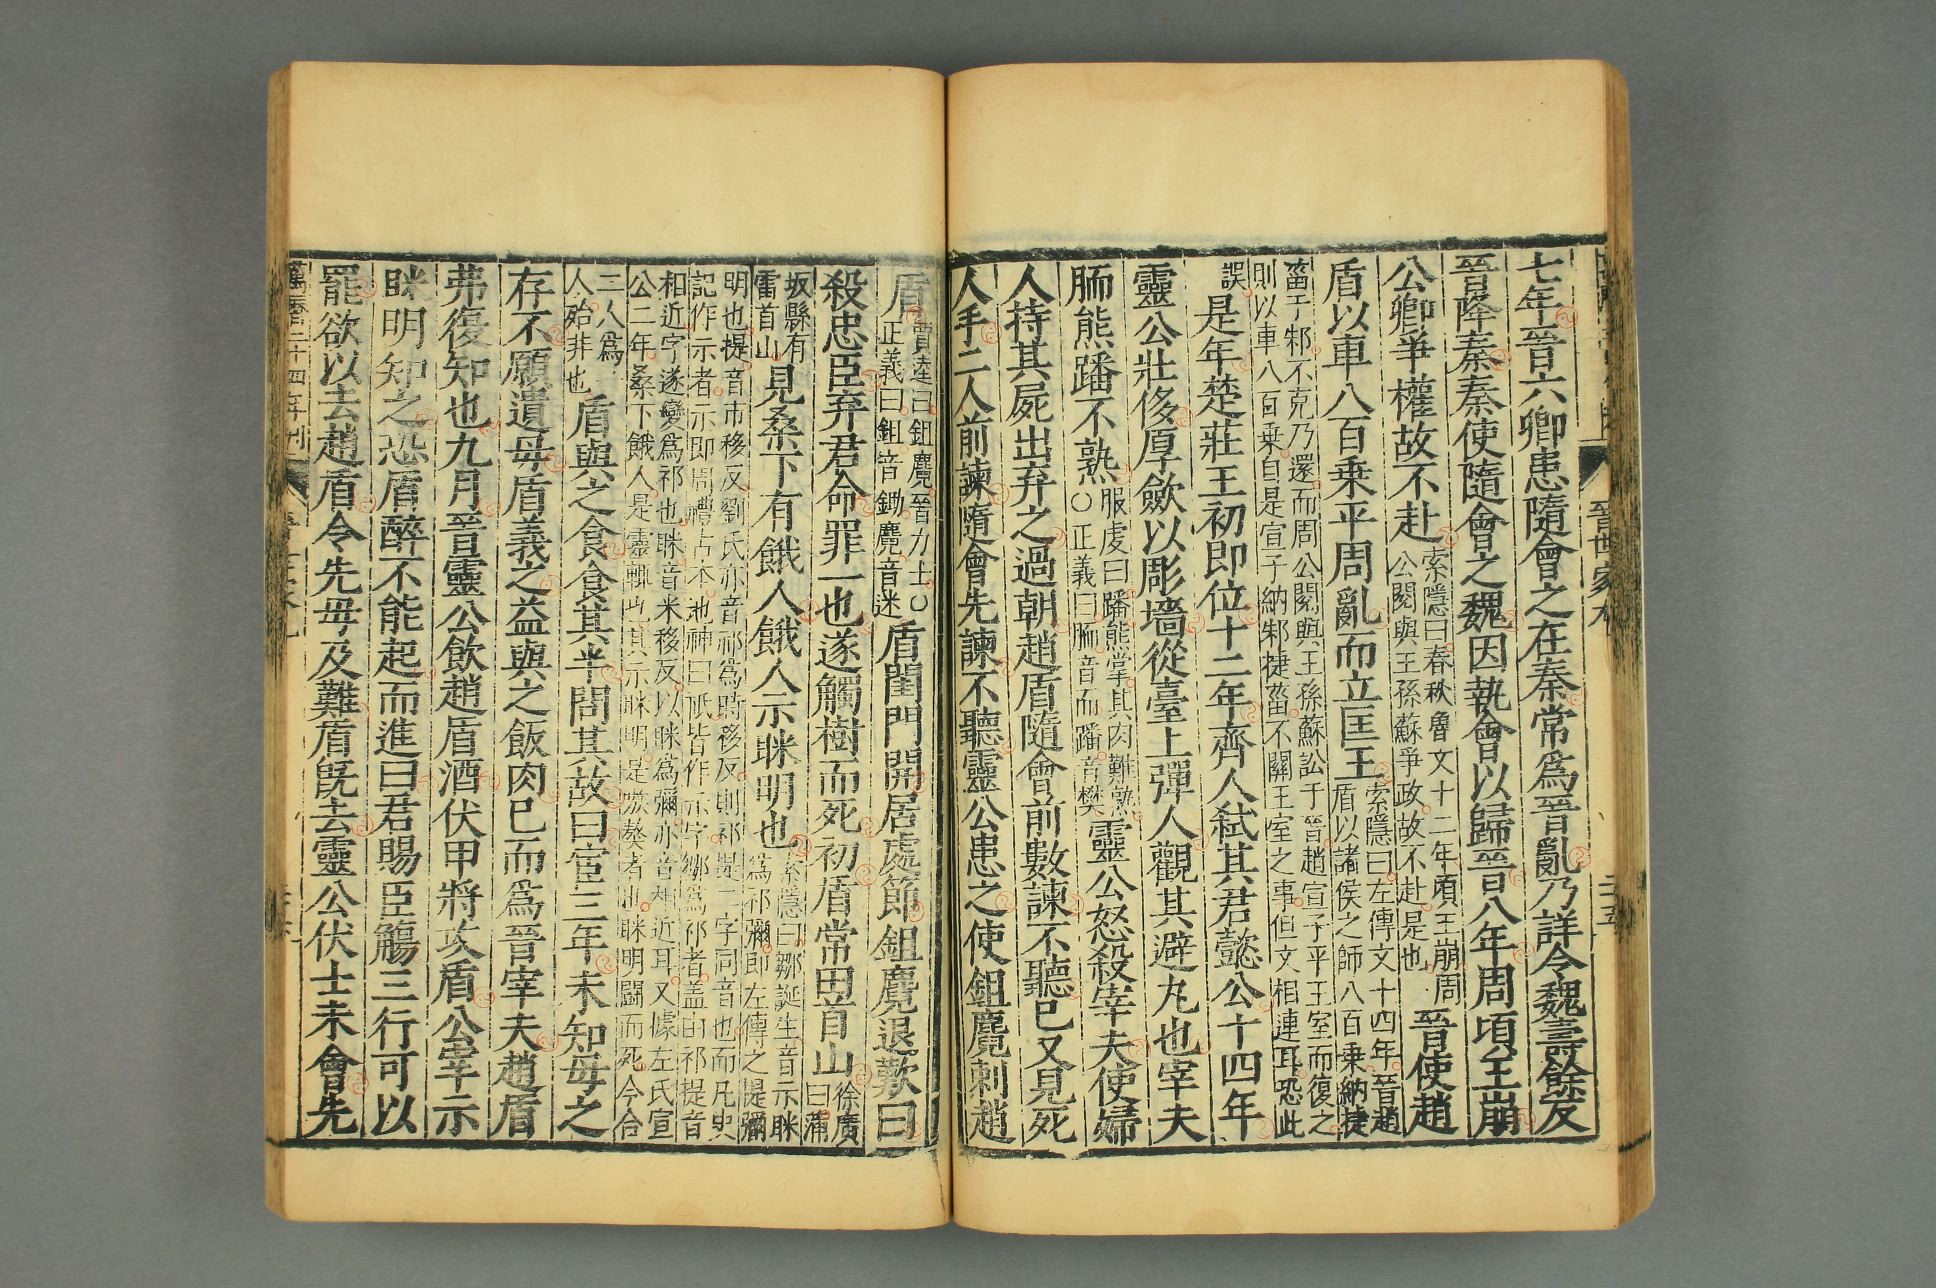 晉世家九
二十五
七年晉六卿患隨會之在秦常爲晉亂乃詳令魏壽餘反
晉降秦秦使隨會之魏因執會以歸晉八年周頃王崩
公卿爭權故不赴
索隱曰春秋魯文十二年頃王崩周
公閱與王孫蘇爭政故不赴是也
晉使趙
盾以車八百乘平周亂而立匡王
索隱曰左傳文十四年晉趙
盾以諸侯之師八百乘納捷
菑于邾不克乃還而周公閱與王孫蘇訟于晉趙宣子平王室而復之
則以車八百乘自是宣子納邾捷菑不關王室之事但文相連耳恐此
誤
是年楚莊王初即位十二年齊人弒其君懿公十四年
靈公壯侈厚歛以彫墻從臺上彈人觀其避丸也宰夫
胹熊蹯不熟
服虔曰蹯熊掌其肉難熟
○正義曰胹音而蹯音樊
靈公怒殺宰夫使婦
人持其屍出弃之過朝趙盾隨會前數諫不聽已又見死
人手二人前諫隨會先諫不聽靈公患之使鉏麑刺趙
盾
賈逵曰鉏麑晉力士○
正義曰鉏音鋤麑音迷
盾閨門開居處節鉏麑退歎曰
殺忠臣弃君命罪一也遂觸樹而死初盾常田首山
徐廣
曰蒲
坂縣有
雷首山
見桑下有餓人餓人示眯明也
索隱曰鄒誕生音示眯
爲祁彌即左傳之提彌
明也提音市移反劉氏亦音祁爲時移反則祁提二字同音也而凡史
記作示者示即周禮古本地神曰祇皆作示字鄒爲祁者蓋由祁提音
相近字遂變爲祁也眯音米移反以眯爲彌亦音相近耳又據左氏宣
公二年桑下餓人是靈輒也其示眯明是嗾獒者也眯明鬭而死今合
三人爲
人殆非也
盾與之食食其半問其故曰宦三年未知母之
存不願遺母盾義之益與之飯肉已而爲晉宰夫趙盾
弗復知也九月晉靈公飲趙盾酒伏甲將攻盾公宰示
眯明知之恐盾醉不能起而進曰君賜臣觴三行可以
罷欲以去趙盾令先毋及難盾旣去靈公伏士未會先
萬曆二十四年刊